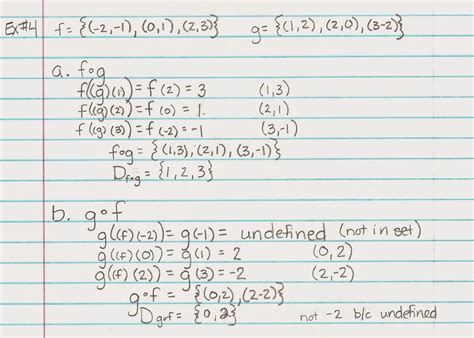 Ex#4 f = {(-2,-1), (0,1), (2,3)} g = {(1,2), (2,0), (3-2)}
a. f∘g
f((g)(1)) = f(2) = 3 (1,3)
f((g)(2)) = f(0) = 1. (2,1)
f((g)(3)) = f(-2) = -1 (3,-1)
f∘g = {(1,3), (2,1), (3,-1)}
D f∘g = {1,2,3}
b. g∘f
g((f)(-2)) = g(-1) = undefined (not in set)
g((f)(0)) = g(1) = 2 (0,2)
g((f)(2)) = g(3) = -2 (2,-2)
g∘f = {(0,2), (2-2)}
D g∘f = {0,2} not -2 b/c undefined